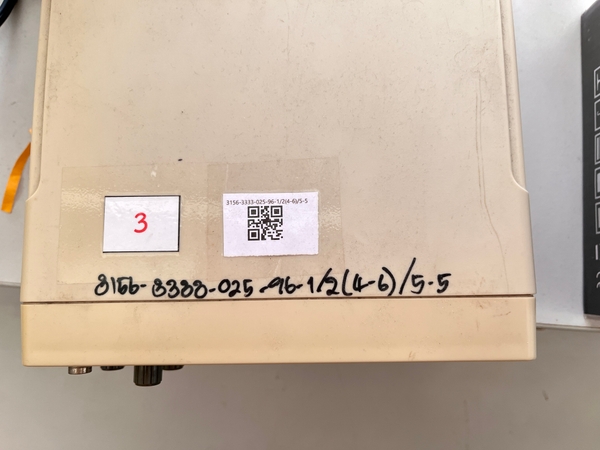 3
3156-3333-025-96-1/2(4-6)/5-5
3156-3333-025-96-1/2(4-6)/5-5